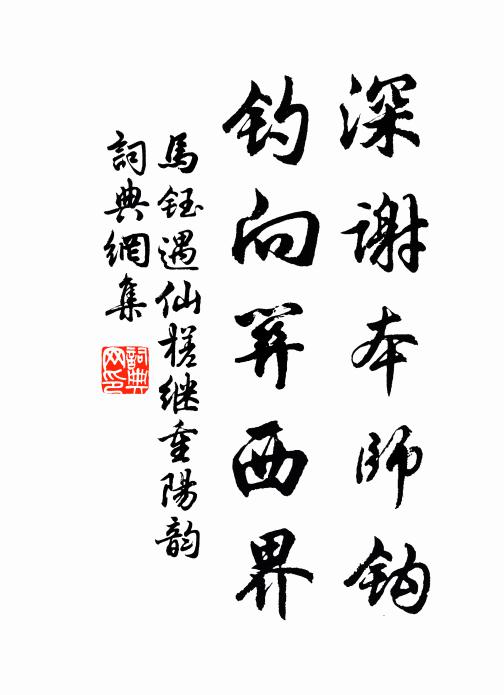 深谢本師钩
钓向西界
馬鈺遇仙槎继重陽韵
詞典網集
詞典网印